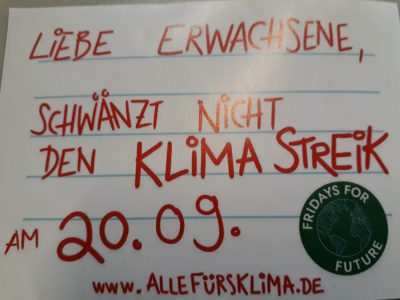 LIEBE ERWACHSENE,
SCHWÄNZT NICHT
DEN KLIMA STREIK
AM 20.09.
FRIDAYS FOR
FUTURE
www.ALLEFÜRSKLIMA.DE